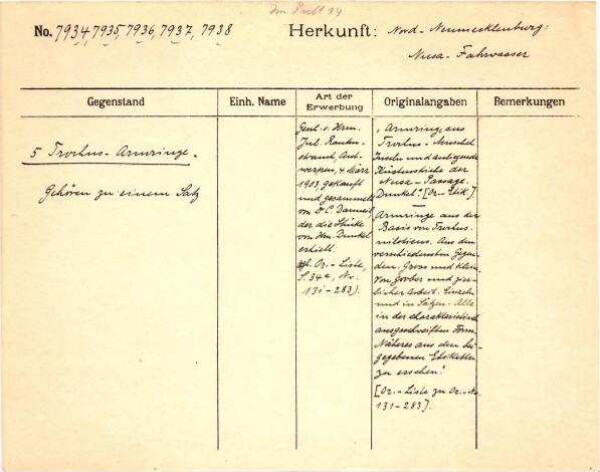 Im Pult 34
No. 7934, 7935, 7936, 7937, 7938
Herkunft: Nord-Neumecklenburg:
Nusa-Fahrwasser
Gegenstand
Einh. Name
Art der
Erwerbung
Originalangaben
Bemerkungen
5 Trochus-Armringe.
Gehören zu einem Satz
v. Hrn.
werpen, 4. März
1903, gekauft
und gesammelt
von
der die Stücke
von Hrn. Dunkel
erhielt.
cf. Or.-Liste,
S. 34a, No.
131-283).
„Armringe aus
Trochus-Muschel
Inseln und anliegende
Küstenstriche der
Nusa-Passage.
Dunkel." [Or.-Etik.]
Armringe aus der
Basis von Trochus
niloticus. Aus den
verschiedensten Gegen-
den. Gross und klein.
Von grober und zier-
licher Arbeit. Einzeln
und in Sätzen. Alle
in der charakteristisch
ausgeschweiften Form.
Näheres aus den bei-
gegebenen Etiketten
zu ersehen."
[Or.-Liste zu Or.-No.
131-283].